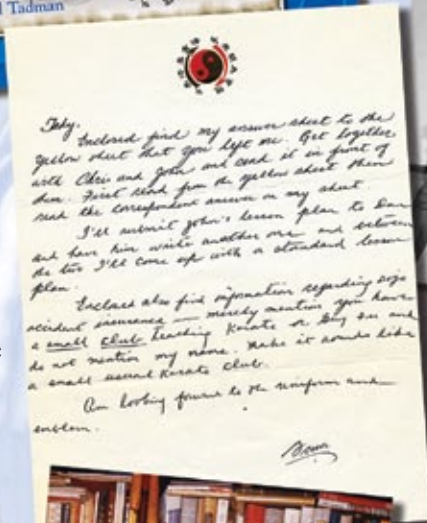 Tadman
Taky,
Enclosed find my answer sheet to the
yellow sheet that you left me. Get together
with Chris and John and read it in front of
them. First read from the yellow sheet then
read the correspondent answer on my sheet.
I'll submit John's lesson plan to Dan
and have him write another one and between
the two I'll come up with a standard lesson
plan.
Enclosed also find information regarding dojo
accident insurance — merely mention you have
a small club teaching Karate or and
do not mention my name. Make it sounds like
a small usual Karate Club.
Am looking forward to the uniform and
emblem.